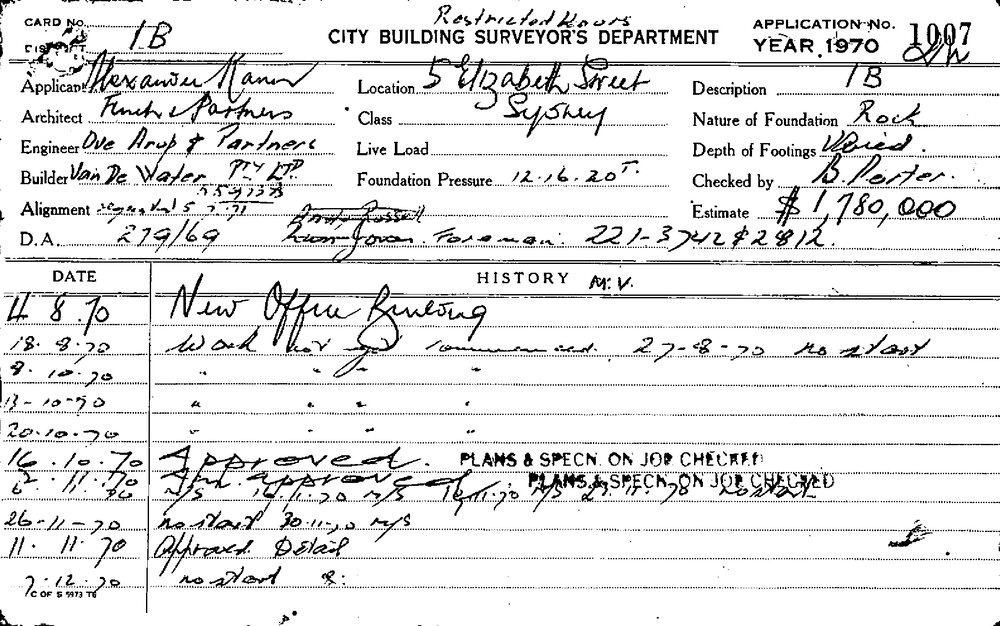 Restricted Hours
CARD No. 1B
CITY BUILDING SURVEYOR'S DEPARTMENT
APPLICATION No. 1007
DISTRICT
YEAR 1970
Applicant Alexander
Location 5 Elizabeth Street
Description 1B
Architect Finch & Partners
Class Sydney
Nature of Foundation Rock
Engineer Ove Arup & Partners
Live Load
Depth of Footings Varied.
Builder Van De Water PTY LTD.
Foundation Pressure 12.16.20 T.
Checked by B. Porter.
Alignment
Estimate $1,780,000
D.A. 279/69 Foreman. 221-3742 & 2812.
DATE
HISTORY M.V.
4 8.70 New Office Building
18.8.70 Work not yet commenced. 27-8-70 no start
8.10.70 " " " "
13-10-70 " " " "
20.10.70 " " "
16.10.70 Approved. PLANS & SPECN. ON JOB CHECKED
2.11.70 approved PLANS & SPECN. ON JOB CHECKED
N/S N/S 16.11.70 N/S no start
26-11-70 no start 30.11.70 N/S
11.11.70 Approved Detail
7.12.70 no start
C OF S 5973 T6